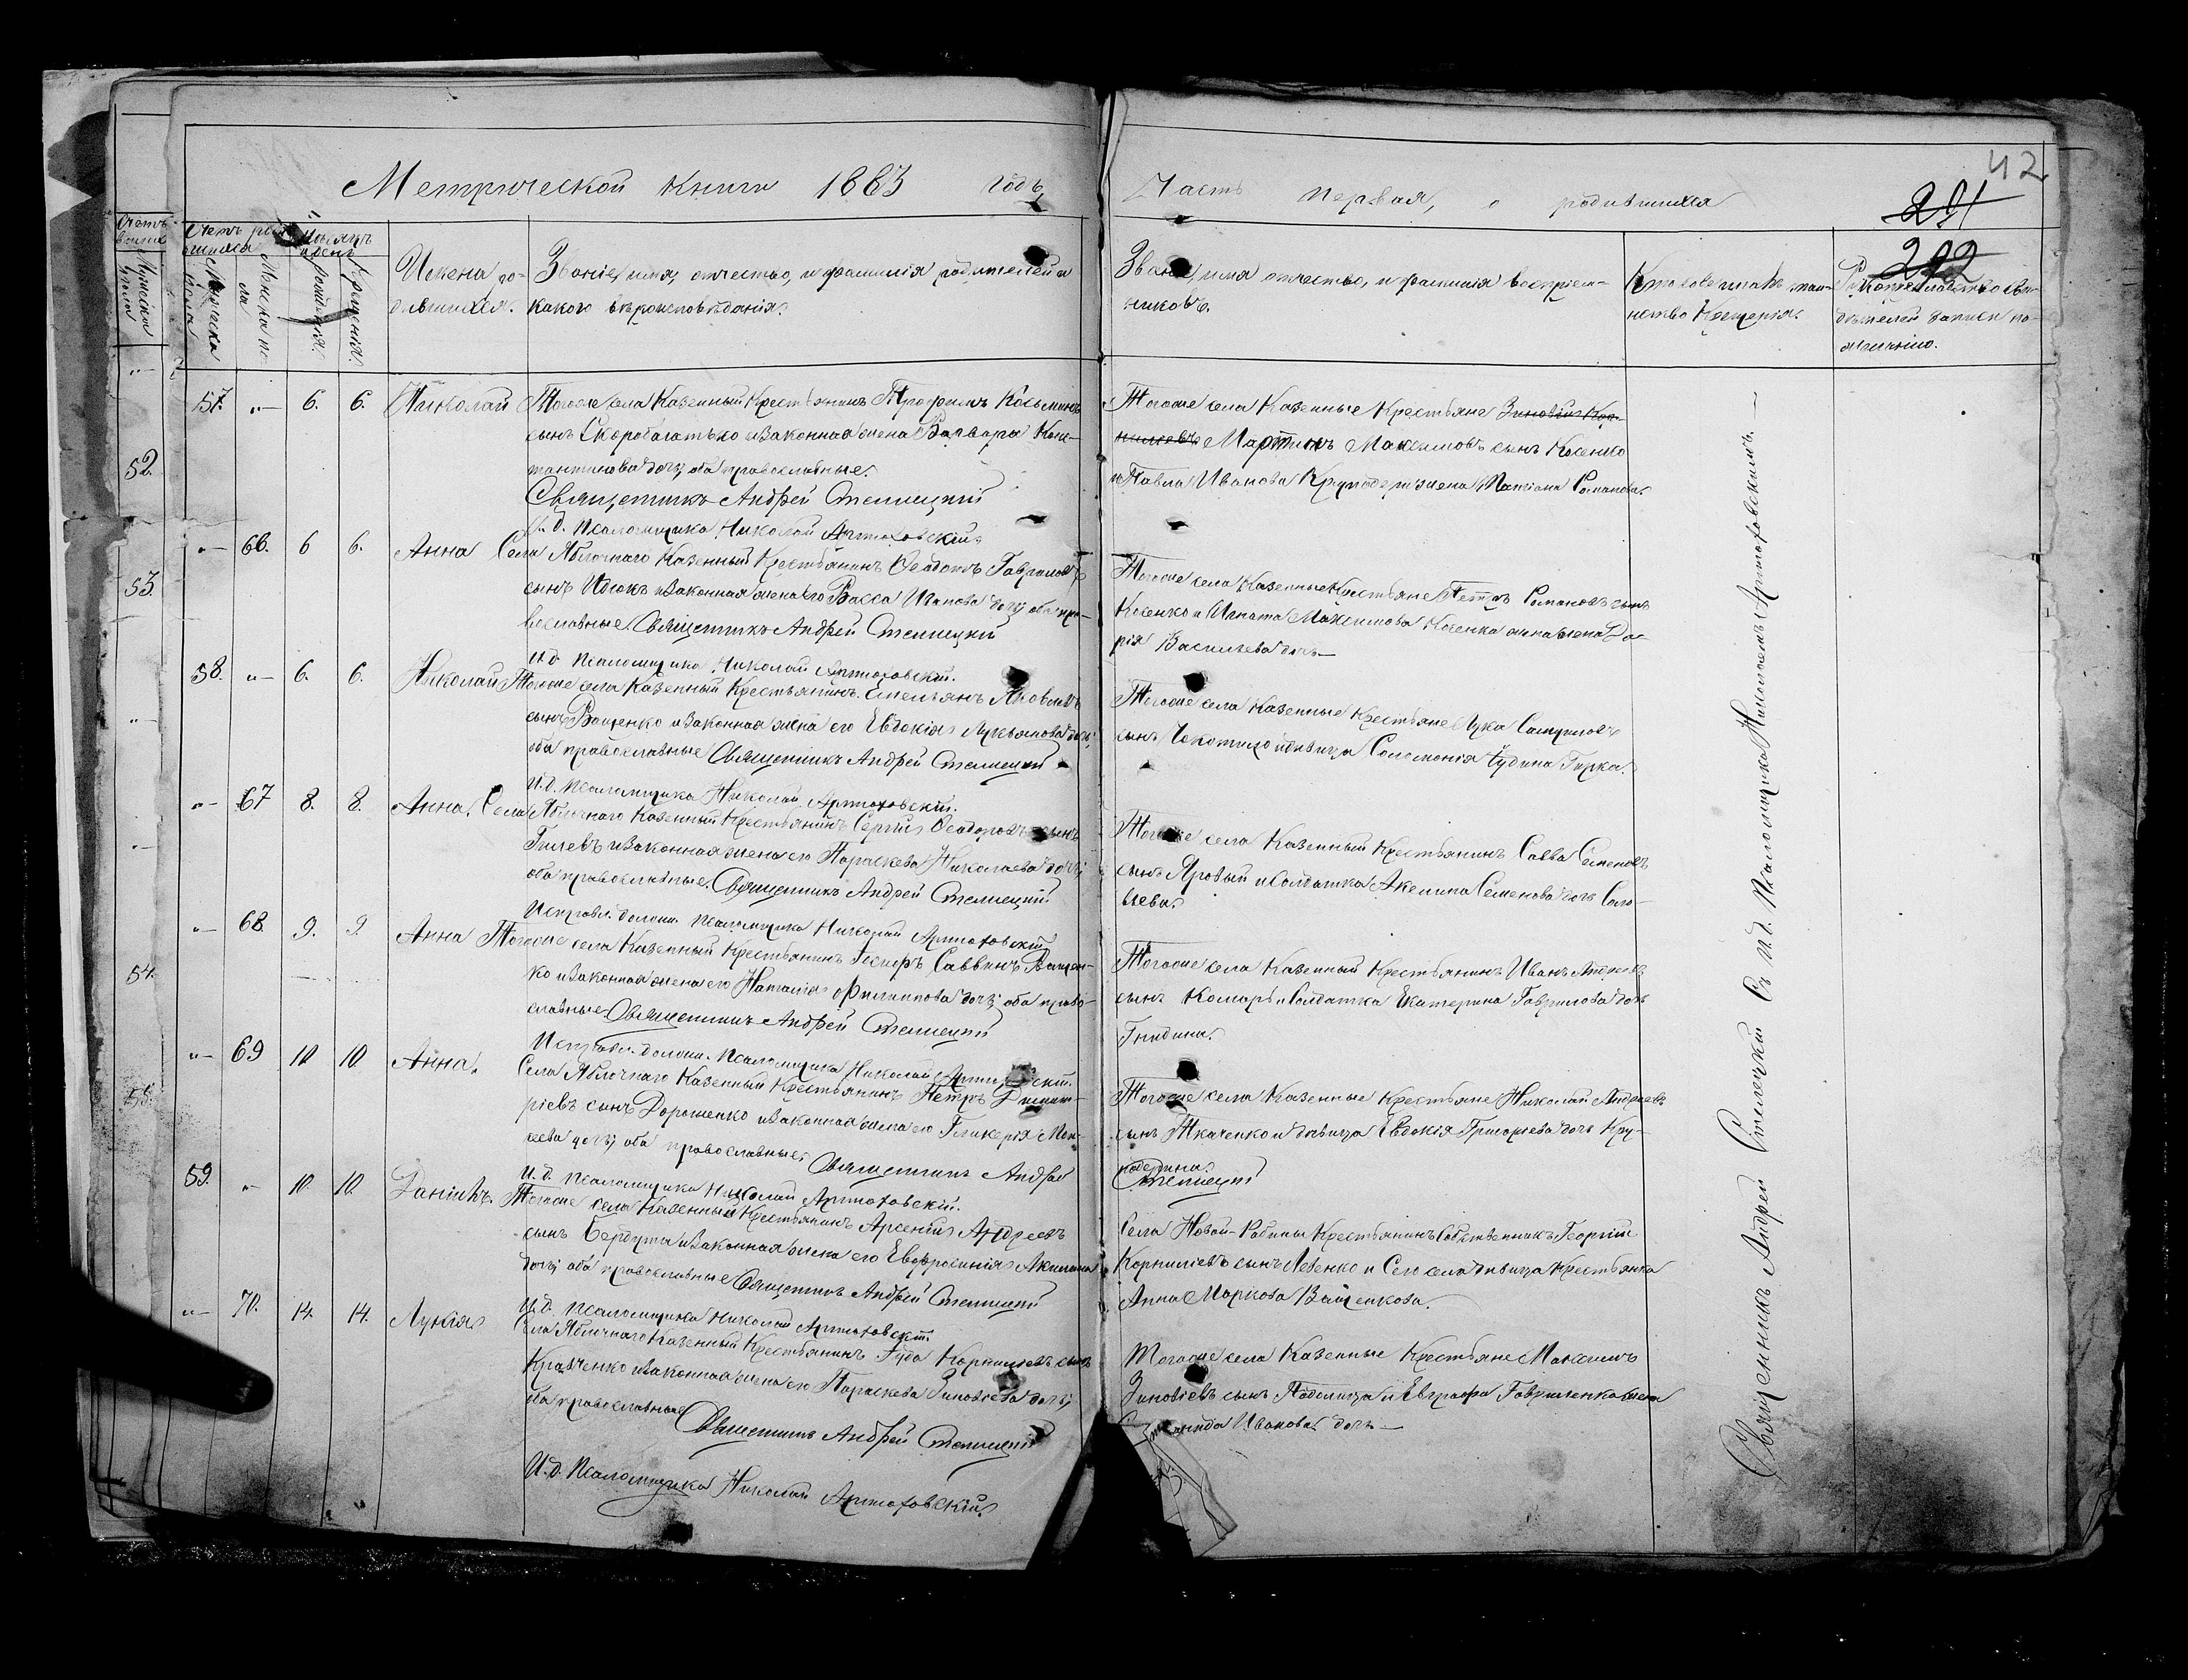 Метрической книги 1883 года
Часть первая, о родившихся
42
291
292
Счетъ родившихся
Мѣсяцъ и день
Мужеска пола
Женска пола
рожденія.
Крещенія.
Имена родившихся.
Званіе, имя, отчество, и фамилія родителей и
какого вѣроисповѣданія.
Званіе, имя отчество, и фамилія воспріем-
никовъ.
Кто совершалъ таин-
ство Крещенія.
Рукоприкладство сви-
дѣтелей записи по
желанію.
52.
53.
54.
55.
57. „— 6. 6. Николай
Тогоже села Казенный Крестьянинъ Трофимъ Косьминъ
сынъ Скоробагатько и Законная жена Варвара Конс-
тантинова дочь, оба православные.
Священникъ Андрей Стеллецкій
И. д. Псаломщика Николай Артюховскій.
Тогоже села Казенные Крестьяне Зиновій Кор-
ниліевъ Мартинъ Максимовъ сынъ Косенко
и Павла Иванова жена Татіана Романова.
„— 66. 6 6. Анна
Села Яблочнаго Казенный Крестьянинъ Ѳеодотъ Гавриловъ
сынъ и Законная жена его Васса Иванова дочь, оба пра-
вославные. Священникъ Андрей Стеллецкій
И. д. Псаломщика Николай Артюховскій.
Тогоже села Казенные Крестьяне Петръ Романовъ сынъ
Косенко и Игната Максимова Косенка жена Да-
рія Васильева дочь —
58. „— 6. 6. Николай
Тогоже села Казенный Крестьянинъ Емельянъ Яковлевъ
сынъ Ващенко и Законная жена его Евдокія Лукьянова дочь,
оба православные Священникъ Андрей Стеллецкій
И. д. Псаломщика Николай Артюховскій.
Тогоже села Казенные Крестьяне Лука Самуиловъ
сынъ и дѣвица Соломонія Іудина Гирка.
„— 67 8. 8. Анна.
Села Яблочнаго Казенный Крестьянинъ Сергій Ѳеодоровъ сынъ
и Законная жена его Параскева Николаева дочь,
оба православные. Священникъ Андрей Стеллецкій
Исправл. должн. Псаломщика Николай Артюховскій
Тогоже села Казенный Крестьянинъ Савва Семеновъ
сынъ Яровый и Солдатка Акелина Семенова дочь Соло-
вьева.
„— 68. 9. 9. Анна
Тогоже села Казенный Крестьянинъ Іосифъ Саввинъ Ващен-
ко и Законная жена его Наталія Филиппова дочь, оба право-
славные Священникъ Андрей Стеллецкій
Исправл. должн. Псаломщика Николай Артюховскій.
Тогоже села Казенный Крестьянинъ Иванъ Андреевъ
сынъ Комаръ и Солдатка Екатерина Гаврилова дочь
Гнидина.
„— 69 10 10. Анна.
Села Яблочнаго Казенный Крестьянинъ Петръ Димит-
ріевъ сынъ Дорошенко и Законная жена его Гликерія Мои-
сеева дочь, оба православные, Священникъ Андрей
Стеллецкій
И. д. Псаломщика Николай Артюховскій.
Тогоже села Казенные Крестьяне Николай Андреевъ
сынъ Ткаченко и дѣвица Евдокія Григорьева дочь Кру-
подерина.
59. „ 10. 10. Даніилъ.
Тогоже села Казенный Крестьянинъ Арсеній Андреевъ
сынъ Бердута и Законная жена его Евфросинія Акилина
дочь, оба православные Священникъ Андрей Стеллецкій
И. д. Псаломщика Николай Артюховскій.
Села Новой-Рабины Крестьянинъ Собственникъ Георгій
Корниліевъ сынъ Левенко и Сего села дѣвица Крестьянка
Анна Маркова Ващенкова.
„— 70. 14. 14. Лукія
Села Яблочнаго Казенный Крестьянинъ Іуда Корниліевъ сынъ
Кравченко и Законная жена его Параскева Зиновіева дочь,
оба православные Священникъ Андрей Стеллецкій
И. д. Псаломщика Николай Артюховскій.
Тогоже села Казенные Крестьяне Максимъ
Зиновіевъ сынъ Подолица и Евграфа Гавриленка жена
Иванова дочь —
Священникъ Андрей Стеллецкій Съ И. д. Псаломщика Николаемъ Артюховскимъ. —